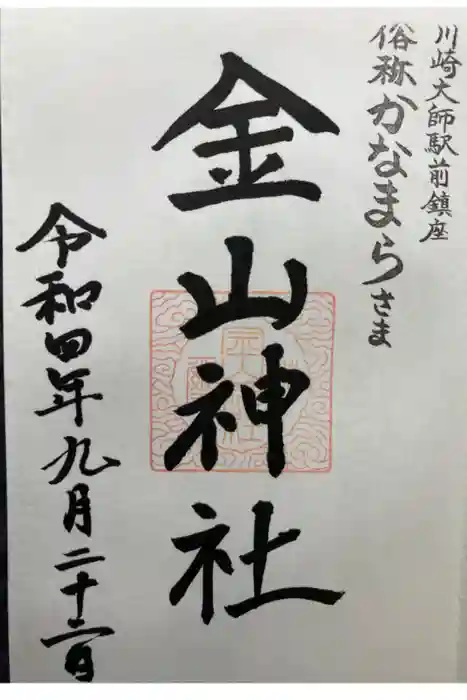 川崎大師駅前鎮座
俗称かなまらさま
金山神社
令和四年九月二十六日